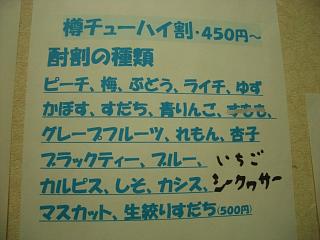 樽チューハイ割・450円～
酎割の種類
ピーチ、梅、ぶどう、ライチ、ゆず
かぼす、すだち、青りんご、すもも、
グレープフルーツ、れもん、杏子
ブラックティー、ブルー、いちご
カルピス、しそ、カシス、シークヮサー
マスカット、生絞りすだち(500円)